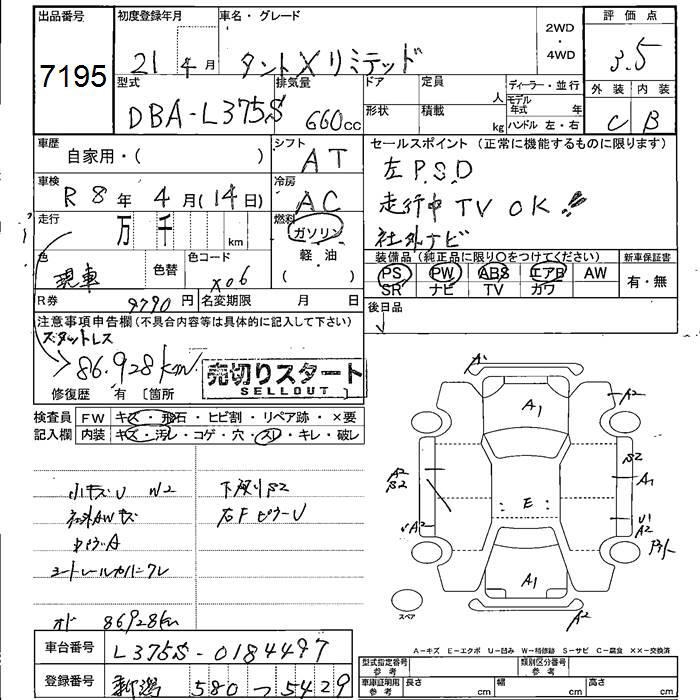 出品番号 初度登録年月 車名・グレード 2WD・4WD 評価点
7195 21年4月 タントXリミテッド 3.5
型式 排気量 ドア 定員 人 ディーラー・並行 外装 内装
DBA-L375S 660cc 形状 積載 kg モデル年式 年 ハンドル 左・右 C B
車歴 自家用・( ) シフト AT
セールスポイント (正常に機能するものに限ります)
左 P.S.D
車検 R8年4月(14日) 冷房 AC
走行中 TV OK!!
走行 万 千 km 燃料 ガソリン 軽・油 ( )
社外ナビ
色 現車 色替 色コード X06
装備品 (純正品に限り○をつけてください) 新車保証書
PS PW ABS エアB AW 有・無
SR ナビ TV カワ
R券 9790円 名変期限 月 日
後日品
注意事項申告欄(不具合内容等は具体的に記入して下さい)
スタットレス
86,928km
売切りスタート
SELLOUT
修復歴 有 〔箇所
検査員記入欄 FW キズ・飛石・ヒビ割・リペア跡・×要
内装 キズ・汚レ・コゲ・穴・スレ・キレ・破レ
小キズU W2 下廻りS2
社外AWキズ 右FピラーU
オド 86928km
A1
A2
A2
S2
S2
A1
E
U1
A2
A1
A2
スペア
A-キズ E-エクボ U-凹み W-補修跡 S-サビ C-腐食 ××-交換済
車台番号 L375S-0184497
登録番号 新潟 580 つ 5429
型式指定番号 参考 類別区分番号 参考
車庫証明用 参考 長さ cm 幅 cm 高さ cm